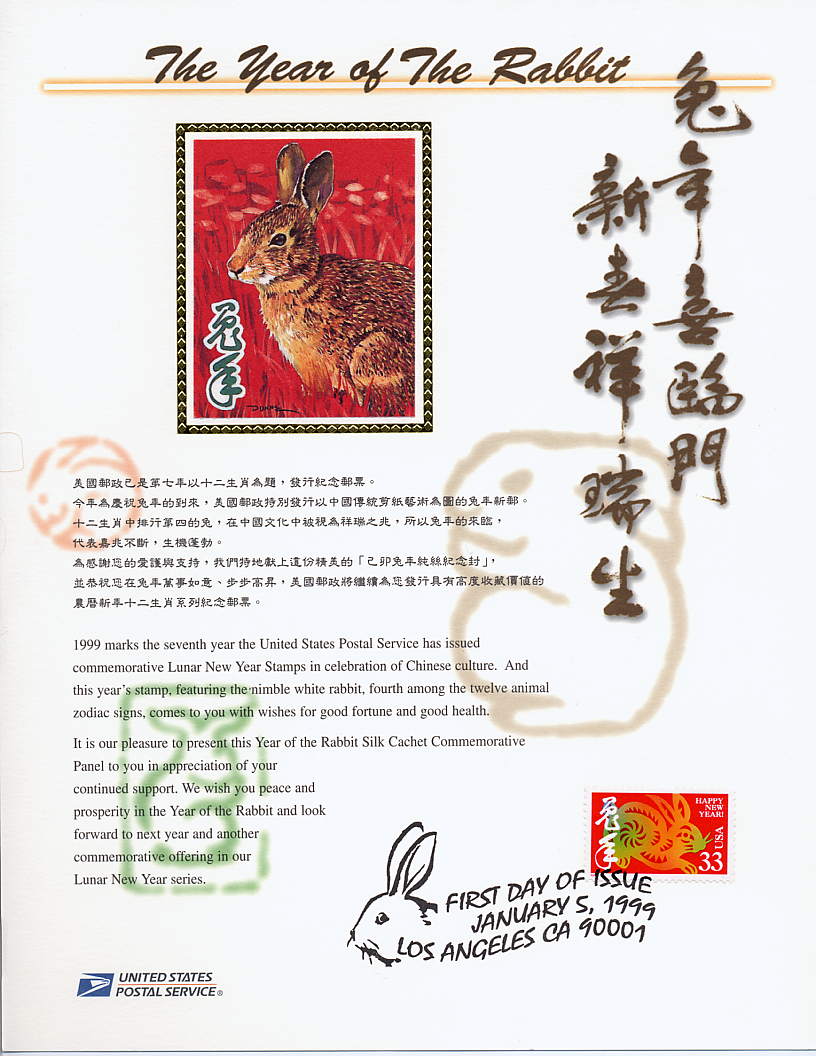 The Year of The Rabbit
兔年喜臨門
新春祥瑞生
兔年
美國郵政已是第七年以十二生肖為題，發行紀念郵票。
今年為慶祝兔年的到來，美國郵政特別發行以中國傳統剪紙藝術為圖的兔年新郵。
十二生肖中排行第四的兔，在中國文化中被視為祥瑞之兆，所以兔年的來臨，
代表嘉兆不斷，生機蓬勃。
為感謝您的愛護與支持，我們特地獻上這份精美的「己卯兔年純絲紀念封」，
並恭祝您在兔年萬事如意、步步高昇，美國郵政將繼續為您發行具有高度收藏價值的
農曆新年十二生肖系列紀念郵票。
1999 marks the seventh year the United States Postal Service has issued
commemorative Lunar New Year Stamps in celebration of Chinese culture. And
this year's stamp, featuring the nimble white rabbit, fourth among the twelve animal
zodiac signs, comes to you with wishes for good fortune and good health.
It is our pleasure to present this Year of the Rabbit Silk Cachet Commemorative
Panel to you in appreciation of your
continued support. We wish you peace and
prosperity in the Year of the Rabbit and look
forward to next year and another
commemorative offering in our
Lunar New Year series.
兔年
HAPPY
NEW
YEAR!
USA
33
FIRST DAY OF ISSUE
JANUARY 5, 1999
LOS ANGELES CA 90001
UNITED STATES
POSTAL SERVICE®